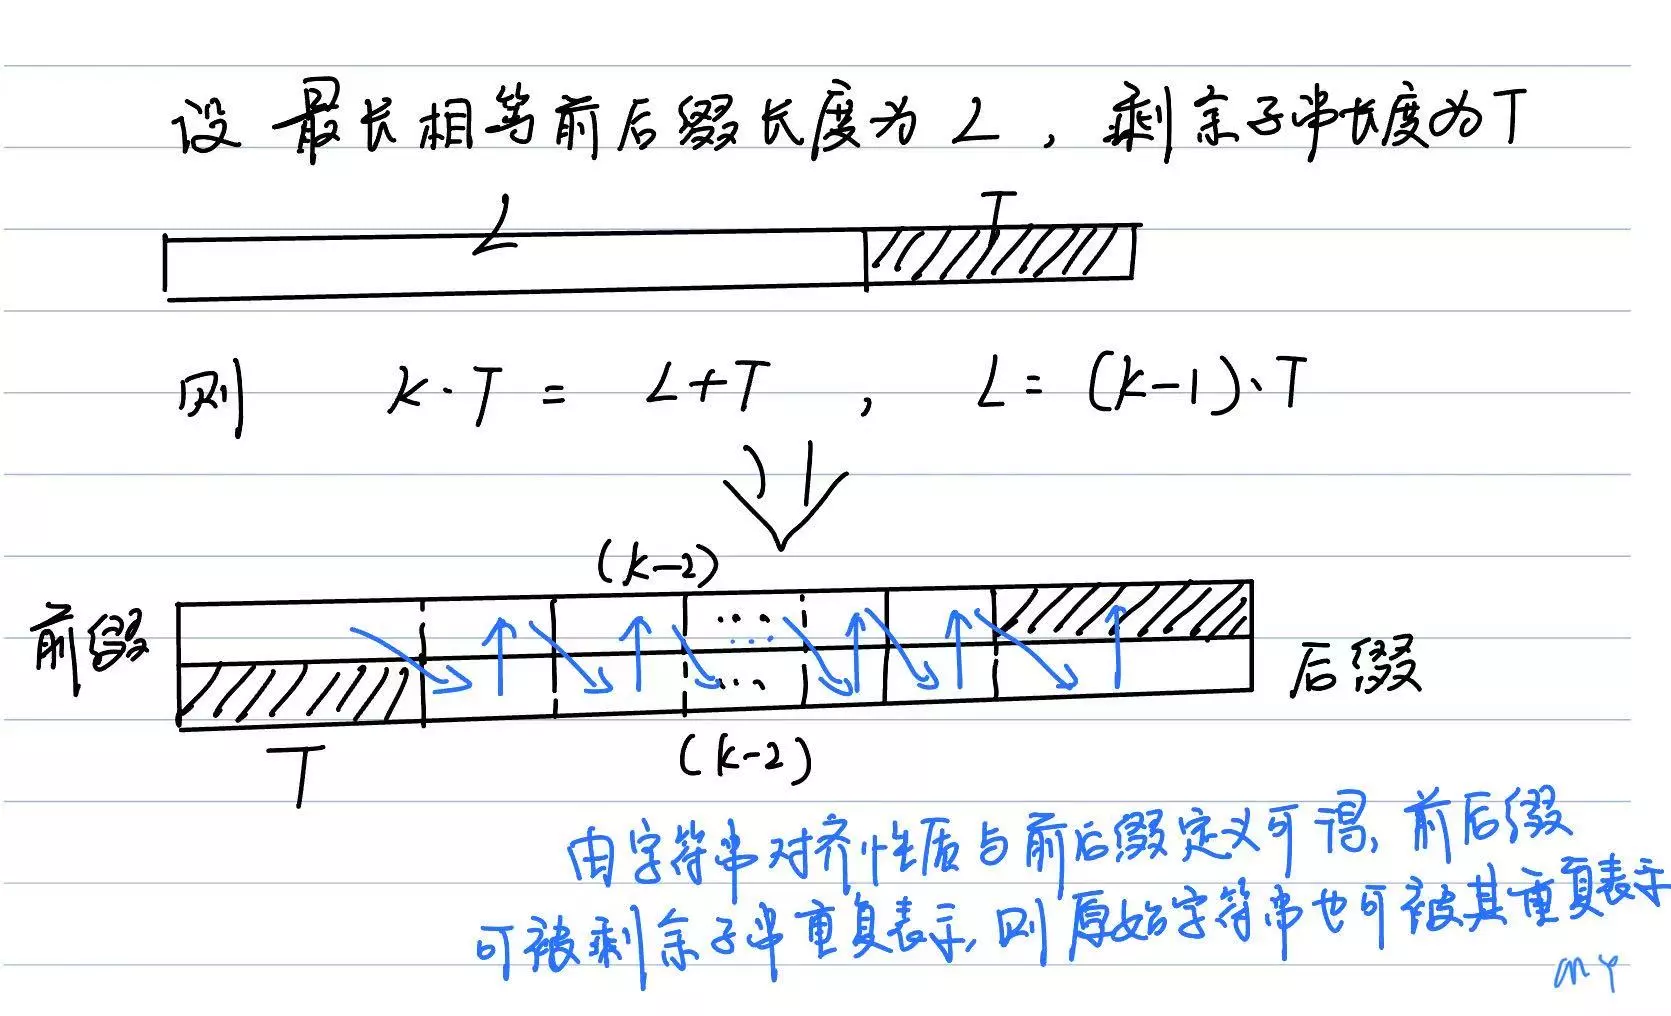 设最长相等前后缀长度为L，剩余子串长度为T
L T
则 k·T = L+T , L = (k-1)·T
(k-2)
前缀
...
...
...
后缀
T
(k-2)
由字符串对齐性质与前后缀定义可得,前后缀
可被剩余子串重复表示,则原始字符串也可被其重复表示
my